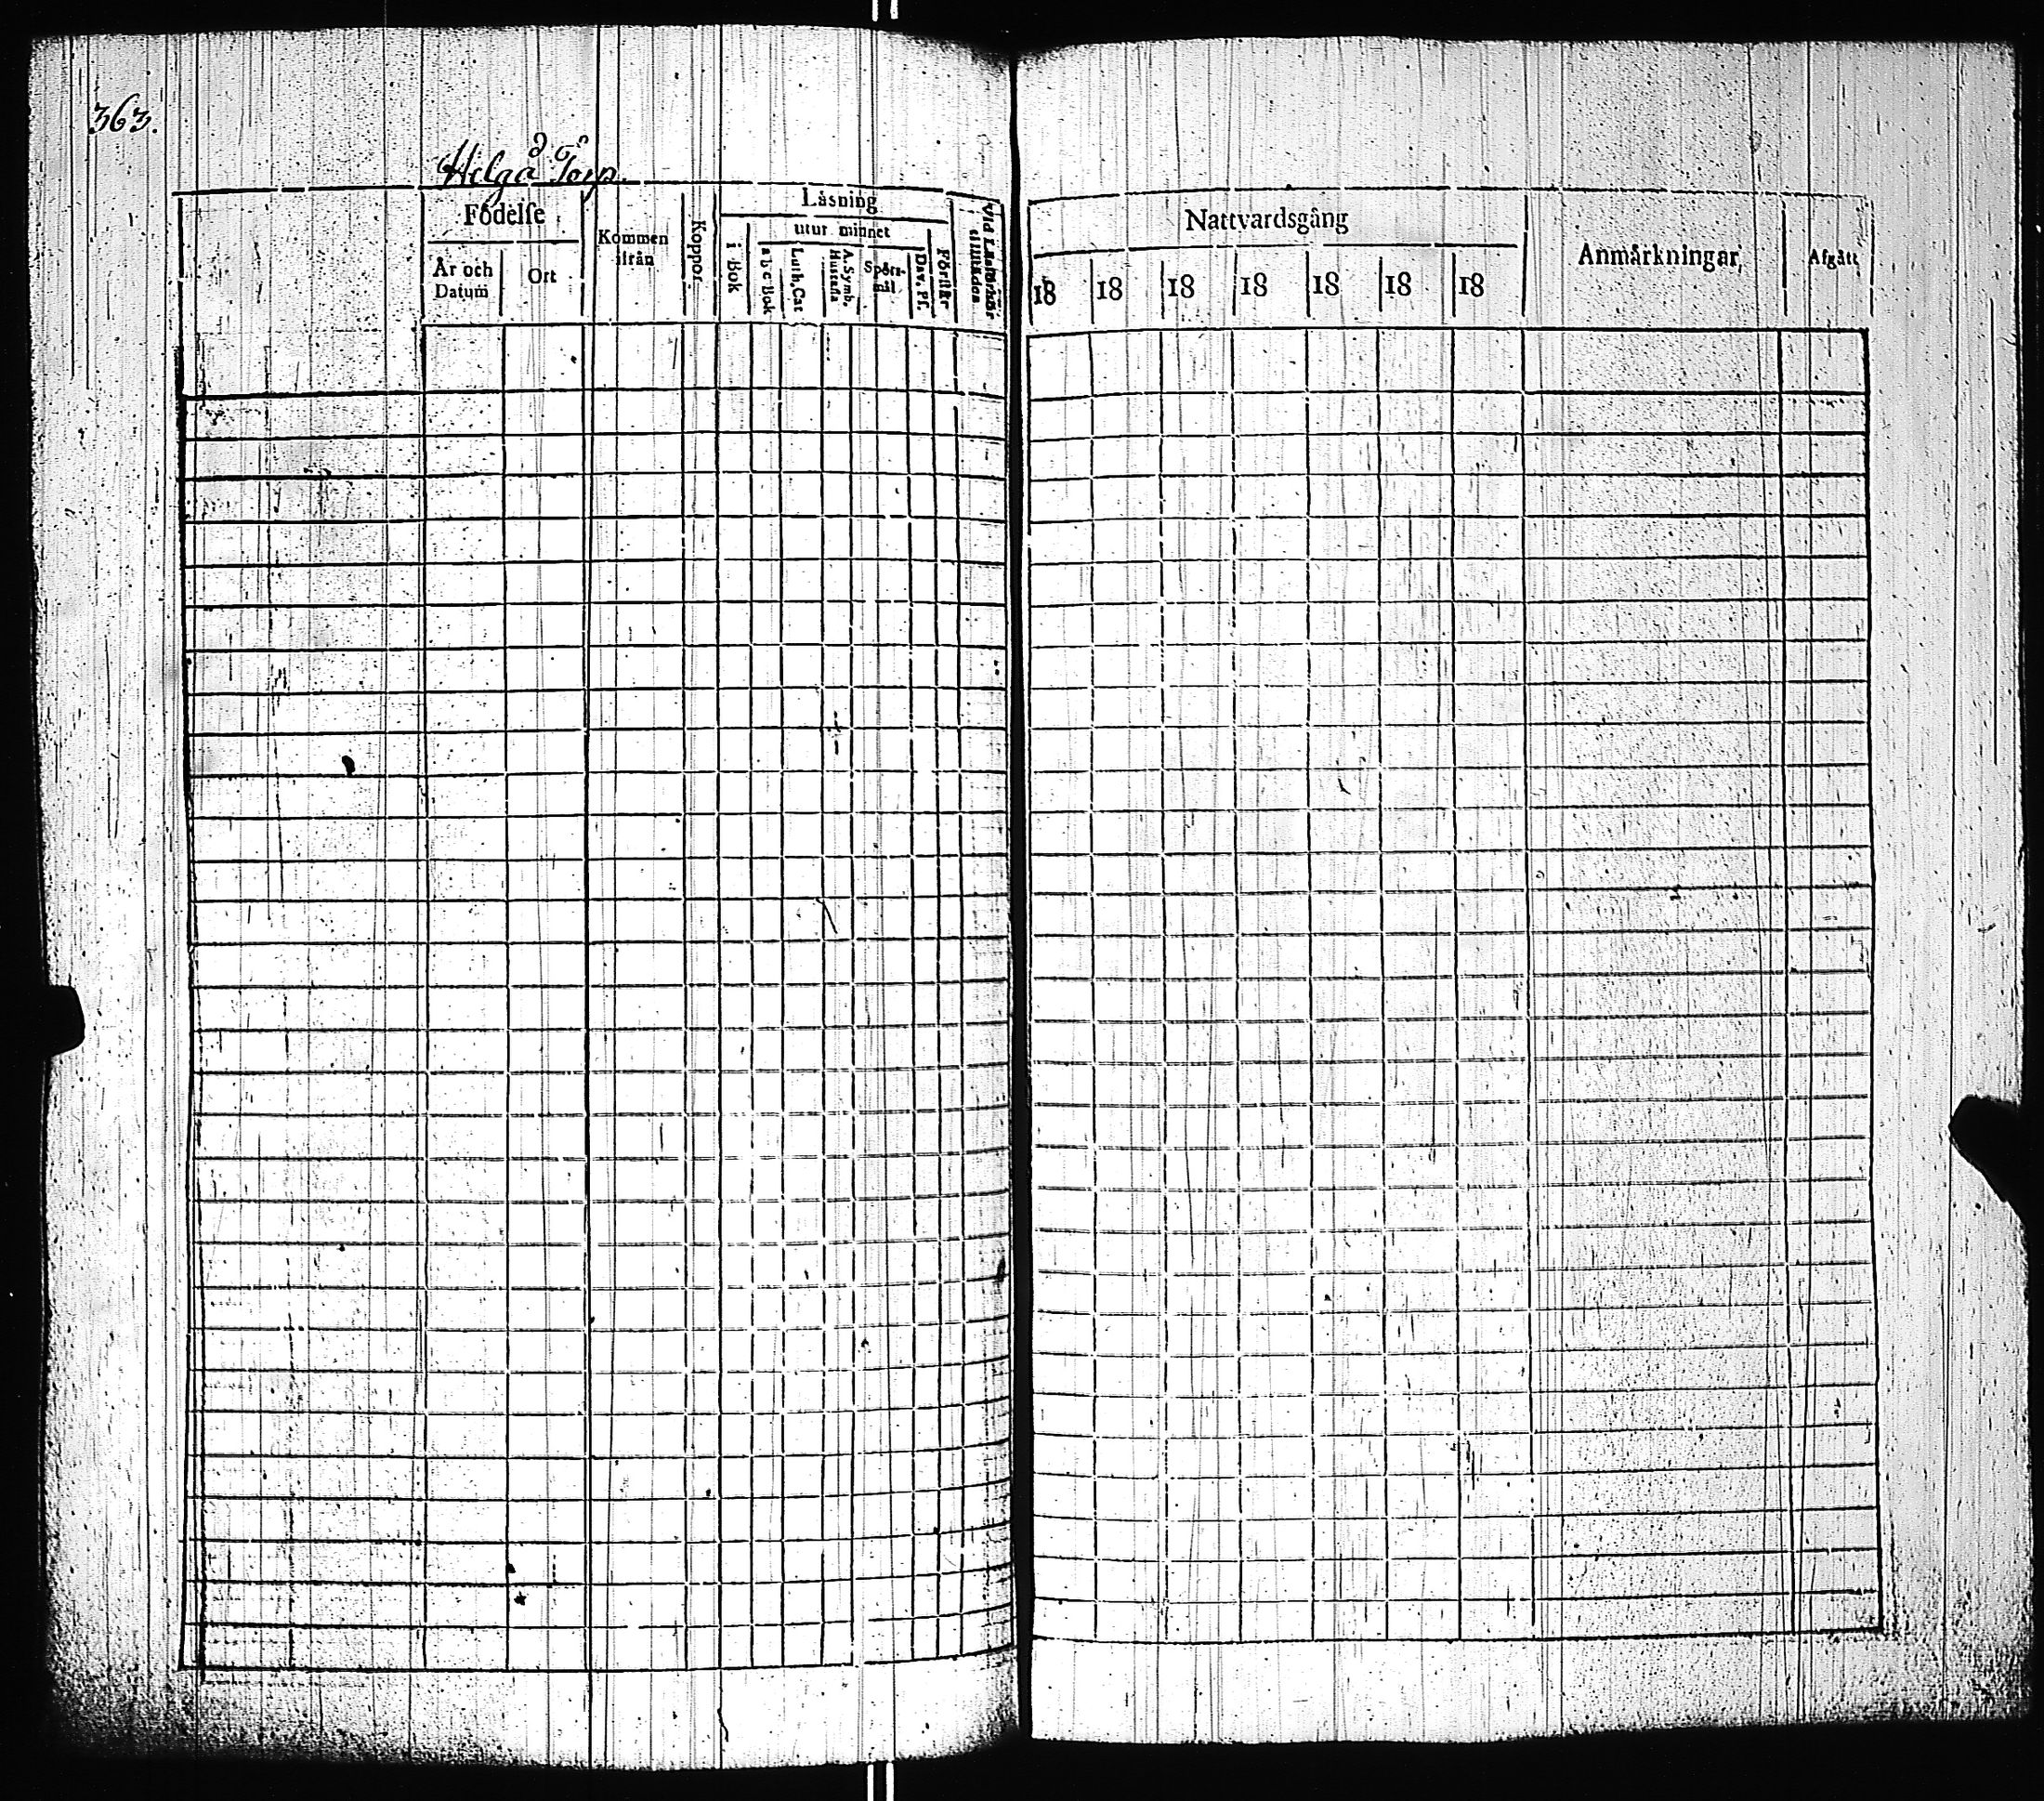 363.
Helgå Torp.
Födelſe
År och
Datum
Ort
Kommen
ifrån
Koppor.
Läsning
i Bok
utur minnet
a b c Bok
Luth. Cat
A. Symb.
Hustafla
Spörs-
mål
Dav. Pſ.
Förſtår
Vid Läsförhör
tillſtädes
Nattvardsgång
18 18 18 18 18 18 18
Anmärkningar,
Afgått